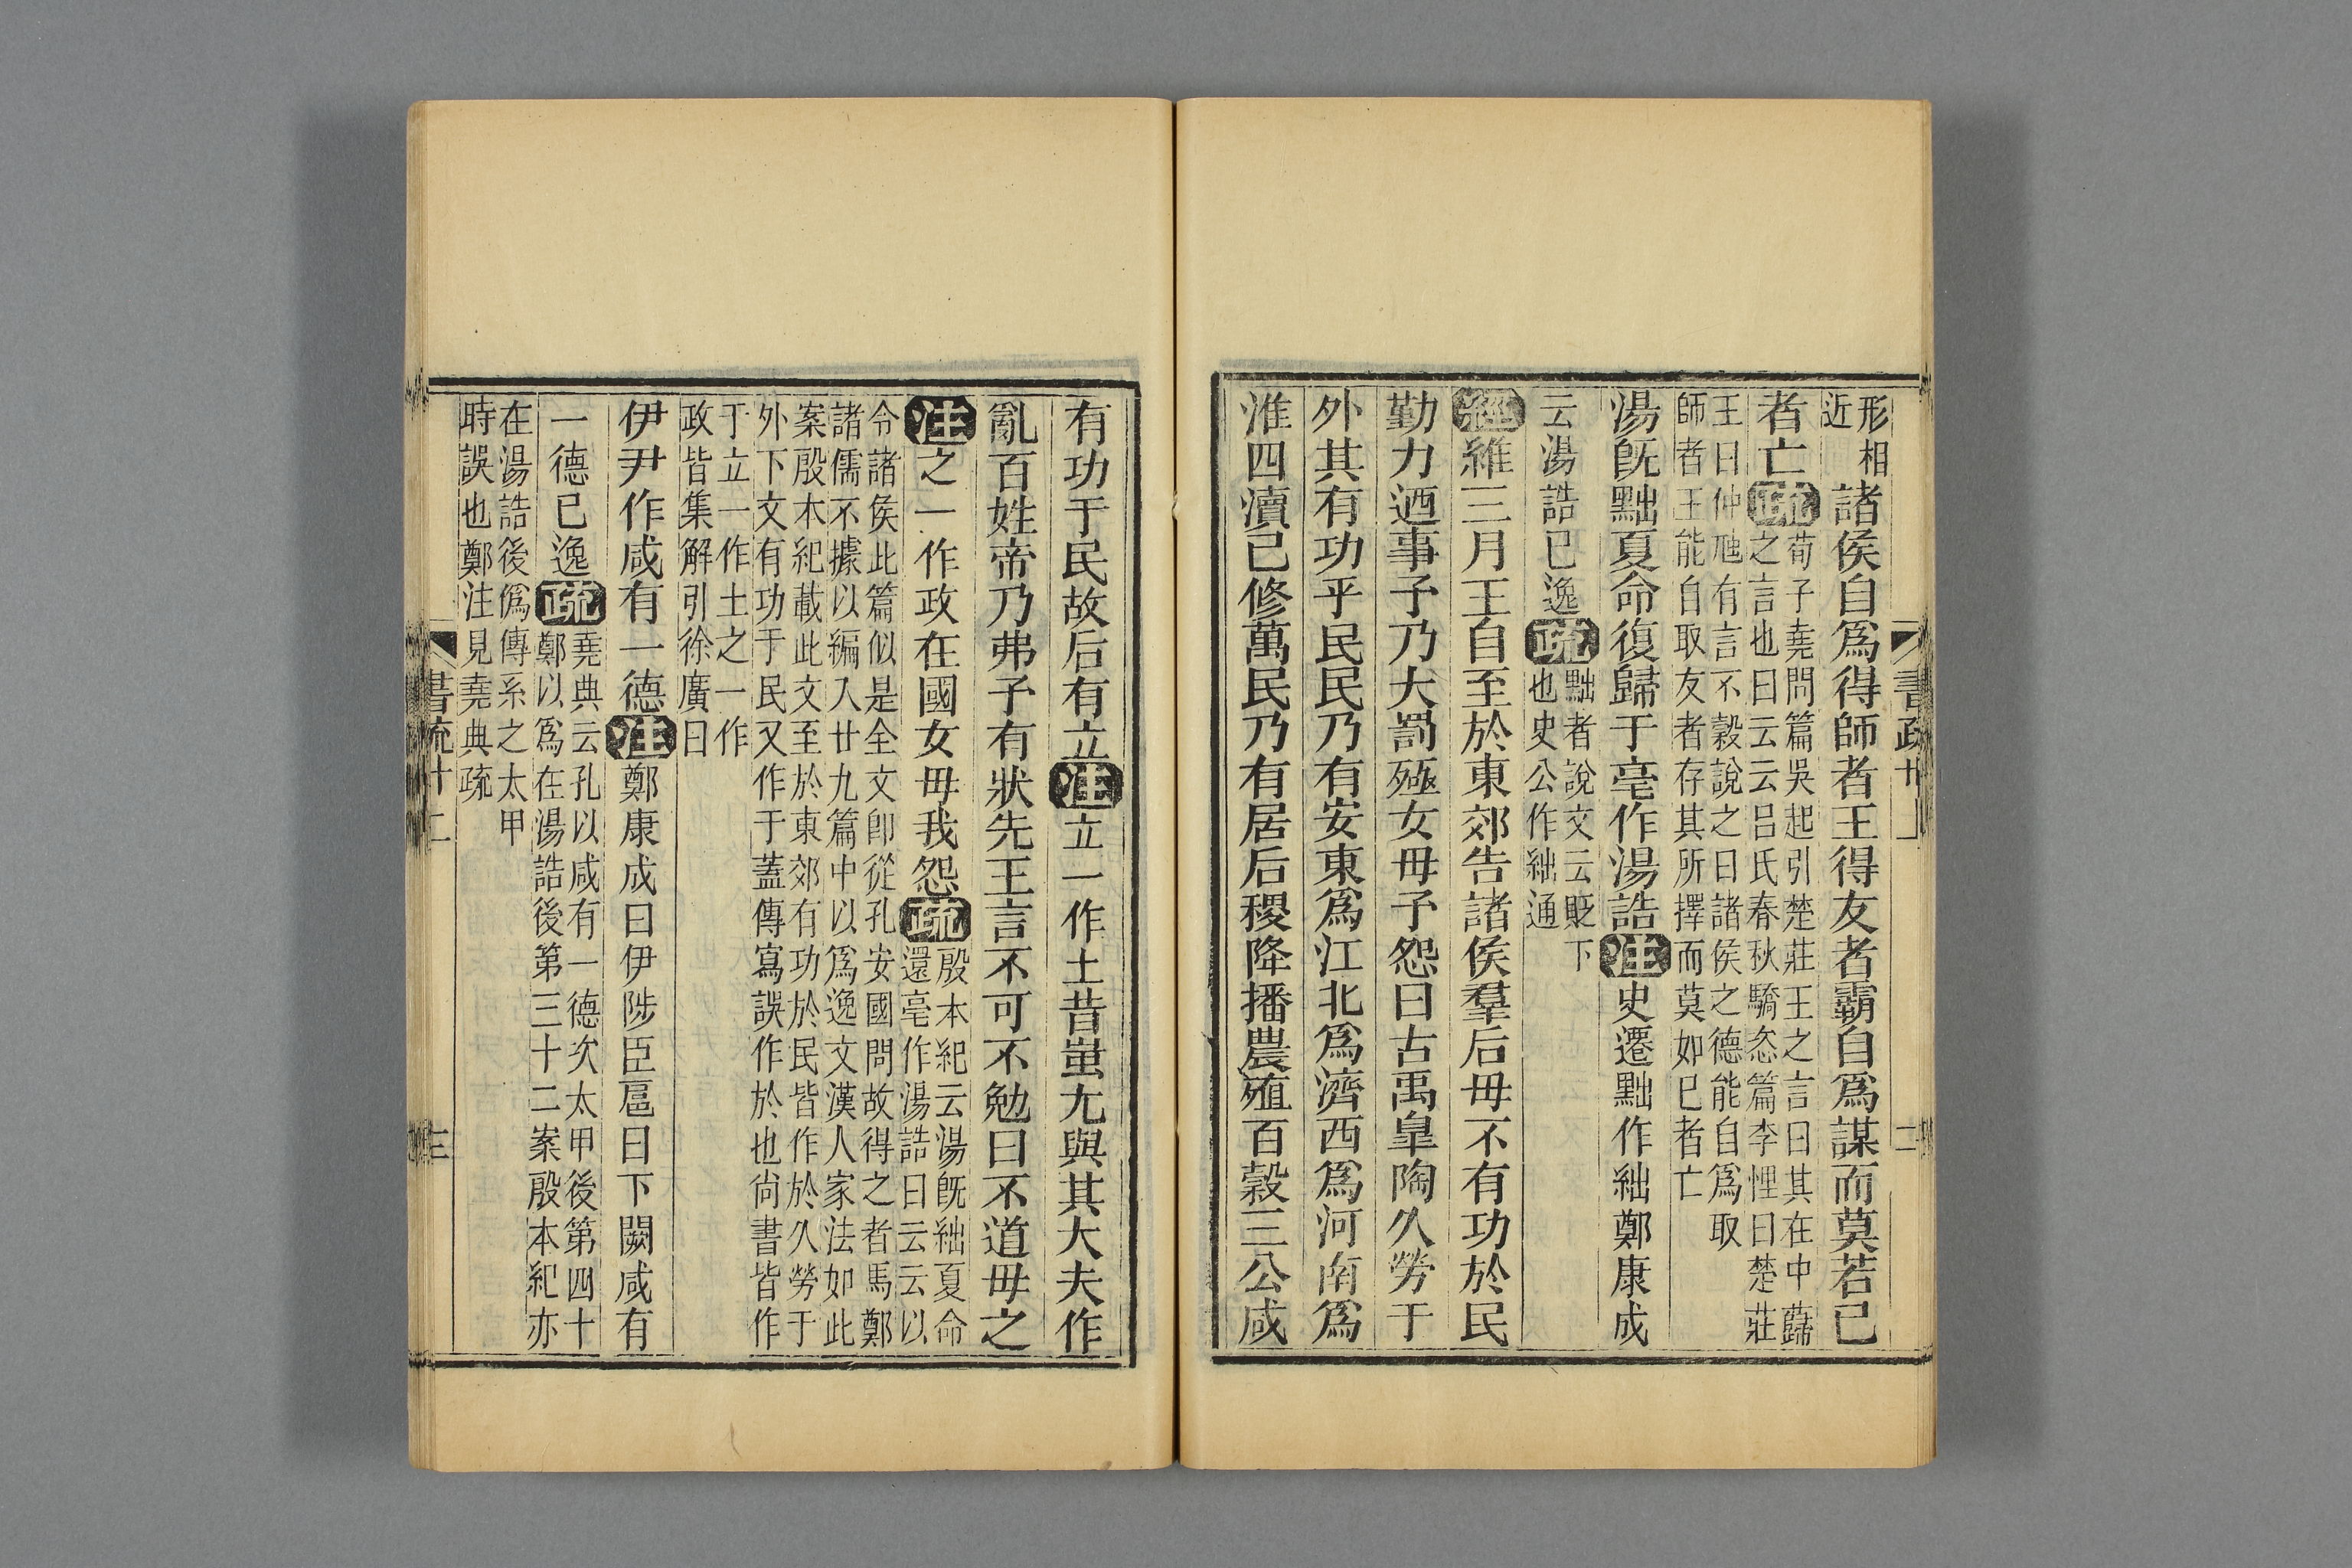 形相
近
諸侯自爲得師者王得友者霸自爲謀而莫若已
者亡疏
荀子堯問篇吳起引楚莊王之言曰其在中蘬
之言也曰云云呂氏春秋驕恣篇李悝曰楚莊
王曰仲虺有言不穀說之曰諸侯之德能自爲取
師者王能自取友者存其所擇而莫如已者亡
湯旣黜夏命復歸于亳作湯誥注史遷黜作絀鄭康成
云湯誥已逸疏
黜者說文云貶下
也史公作絀通
經維三月王自至於東郊告諸侯羣后毋不有功於民
勤力迺事予乃大罰殛女毋予怨曰古禹臯陶久勞于
外其有功乎民民乃有安東爲江北爲濟西爲河南爲
淮四瀆已修萬民乃有居后稷降播農殖百穀三公咸
有功于民故后有立注立一作土昔蚩尤與其大夫作
亂百姓帝乃弗予有狀先王言不可不勉曰不道毋之
注之一作政在國女毋我怨疏
殷本紀云湯旣絀夏命
還亳作湯誥曰云云以
令諸侯此篇似是全文卽從孔安國問故得之者馬鄭
諸儒不據以編入廿九篇中以爲逸文漢人家法如此
案殷本紀載此文至於東郊有功於民皆作於久勞于
外下文有功于民又作于蓋傳寫誤作於也尙書皆作
于立一作土之一作
政皆集解引徐廣曰
伊尹作咸有一德注鄭康成曰伊陟臣扈曰下闕咸有
一德已逸疏
堯典云孔以咸有一德次太甲後第四十
鄭以爲在湯誥後第三十二案殷本紀亦
在湯誥後僞傳系之太甲
時誤也鄭注見堯典疏
書疏十二
三